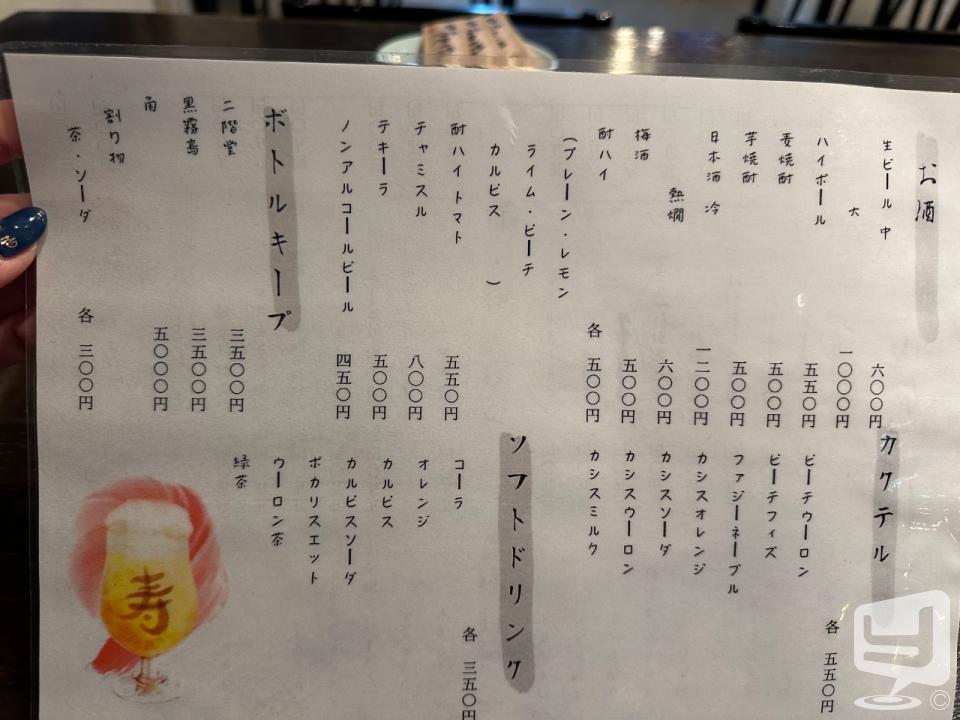 お酒
生ビール 中 六〇〇円
大 一〇〇〇円
ハイボール 五五〇円
麦焼酎 五〇〇円
芋焼酎 五〇〇円
日本酒 冷 一二〇〇円
熱燗 六〇〇円
梅酒 五〇〇円
酎ハイ 各 五〇〇円
(プレーン・レモン
ライム・ピーチ
カルピス )
酎ハイトマト 五五〇円
チャミスル 八〇〇円
テキーラ 五〇〇円
ノンアルコールビール 四五〇円
ボトルキープ
二階堂 三五〇〇円
黒霧島 三五〇〇円
角 五〇〇〇円
割り物
茶・ソーダ 各 三〇〇円
カクテル
各 五五〇円
ピーチウーロン
ピーチフィズ
ファジーネーブル
カシスオレンジ
カシスソーダ
カシスウーロン
カシスミルク
ソフトドリンク
各 三五〇円
コーラ
オレンジ
カルピス
カルピスソーダ
ポカリスエット
ウーロン茶
緑茶
寿